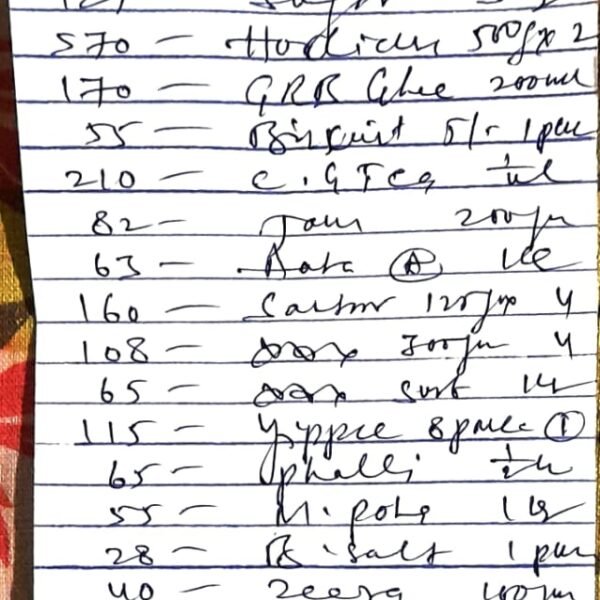 570 - Horlicks 500g x 2
170 - GRB Ghee 200ml
55 - Biscuit 5/- 1 pac
210 - C.G Tea 1/2 k
82 - Jam 200gm
63 - Bata (A) 1k
160 - 125g x 4
108 - xxx 300gm 4
65 - xxx Surf 1k
115 - Yippee 8 pace (1)
65 - phalli 1/2 k
55 - M. poha 1k
28 - B. salt 1 pac
40 - Zeera 100gm